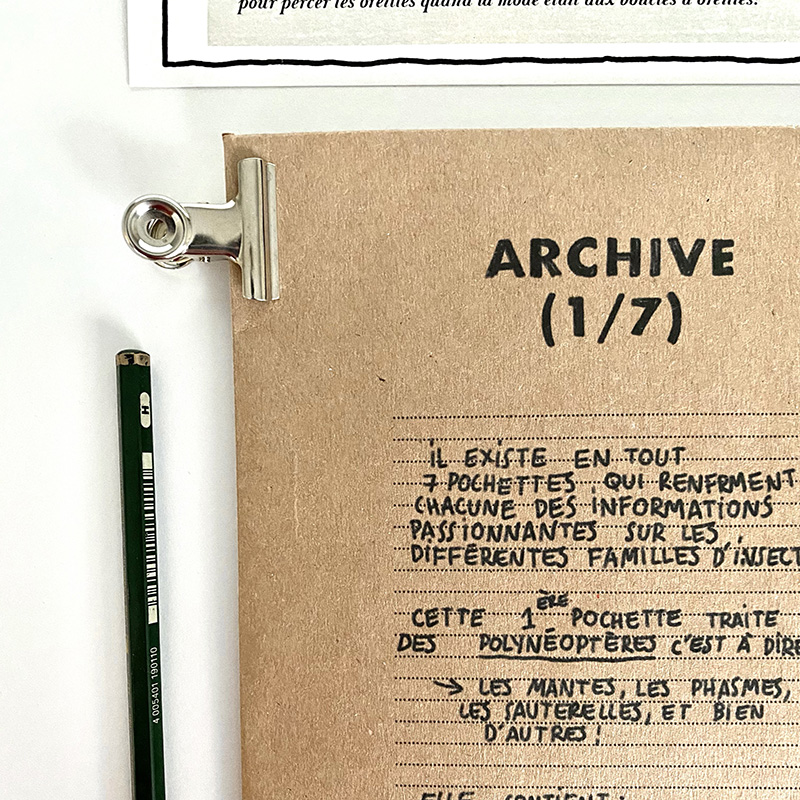 pour percer les oreilles quand la mode était aux boucles d'oreilles.
ARCHIVE
(1/7)
IL EXISTE EN TOUT
7 POCHETTES QUI RENFRMENT
CHACUNE DES INFORMATIONS
PASSIONNANTES SUR LES
DIFFÉRENTES FAMILLES D'INSECT
CETTE 1ÈRE POCHETTE TRAITE
DES POLYNÉOPTÈRES C'EST À DIRE
→ LES MANTES, LES PHASMES,
LES SAUTERELLES, ET BIEN
D'AUTRES!
ELLE CONTIENT :
H
4 005401 190110